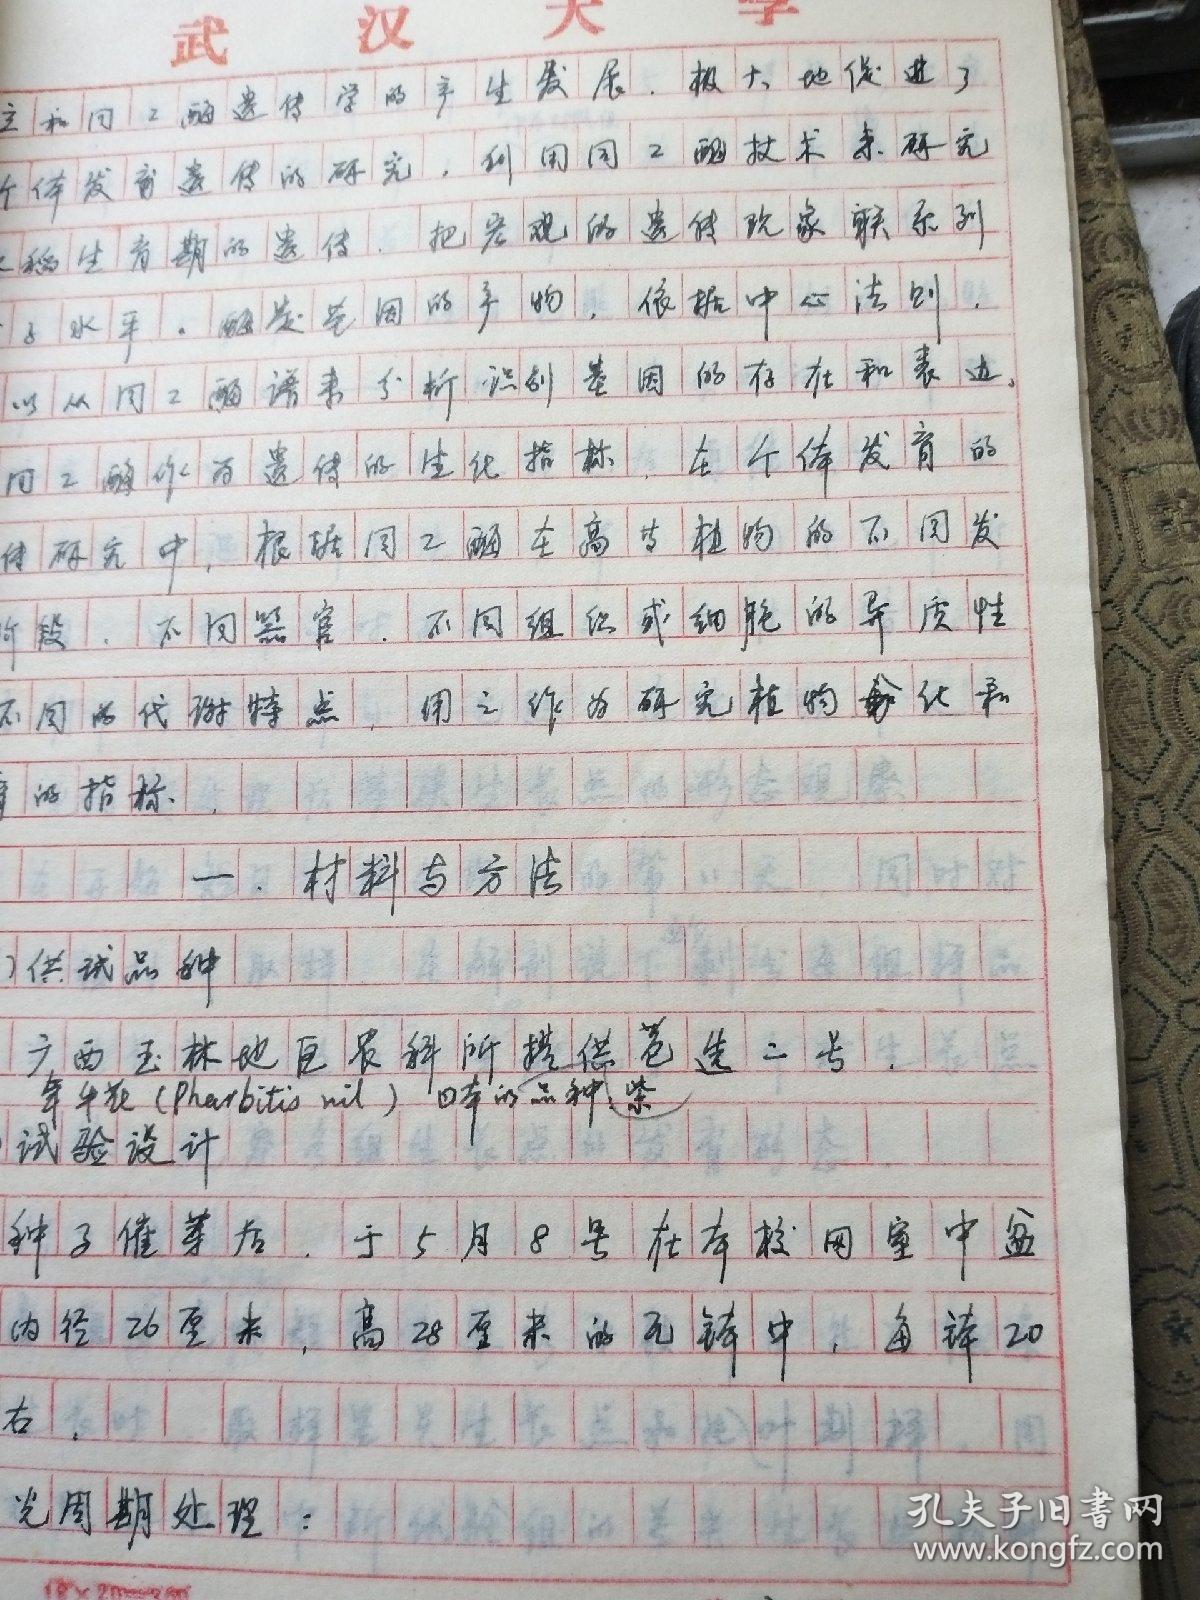 武汉大学
立和同工酶遗传学的产生发展，极大地促进了
个体发育遗传的研究，利用同工酶技术来研究
稻生育期的遗传，把宏观的遗传现象联系到
子水平。酶是基因的产物，依据中心法则，
以从同工酶谱来分析识别基因的存在和表达。
同工酶作为遗传的生化指标，在个体发育的
传研究中，根据同工酶在高等植物的不同发
阶段，不同器官，不同组织或细胞的异质性
不同的代谢特点，用之作为研究植物分化和
育的指标。
一．材料与方法
）供试品种
广西玉林地区农科所提供苞选二号．
牵牛花（Pharbitis nil） 日本的品种、紫
）试验设计
种子催芽后，于5月8号在本校网室中盆
内径26厘米，高28厘米的瓦钵中，每钵20
右．
光周期处理：
18×20=360
孔夫子旧书网
www.kongfz.com